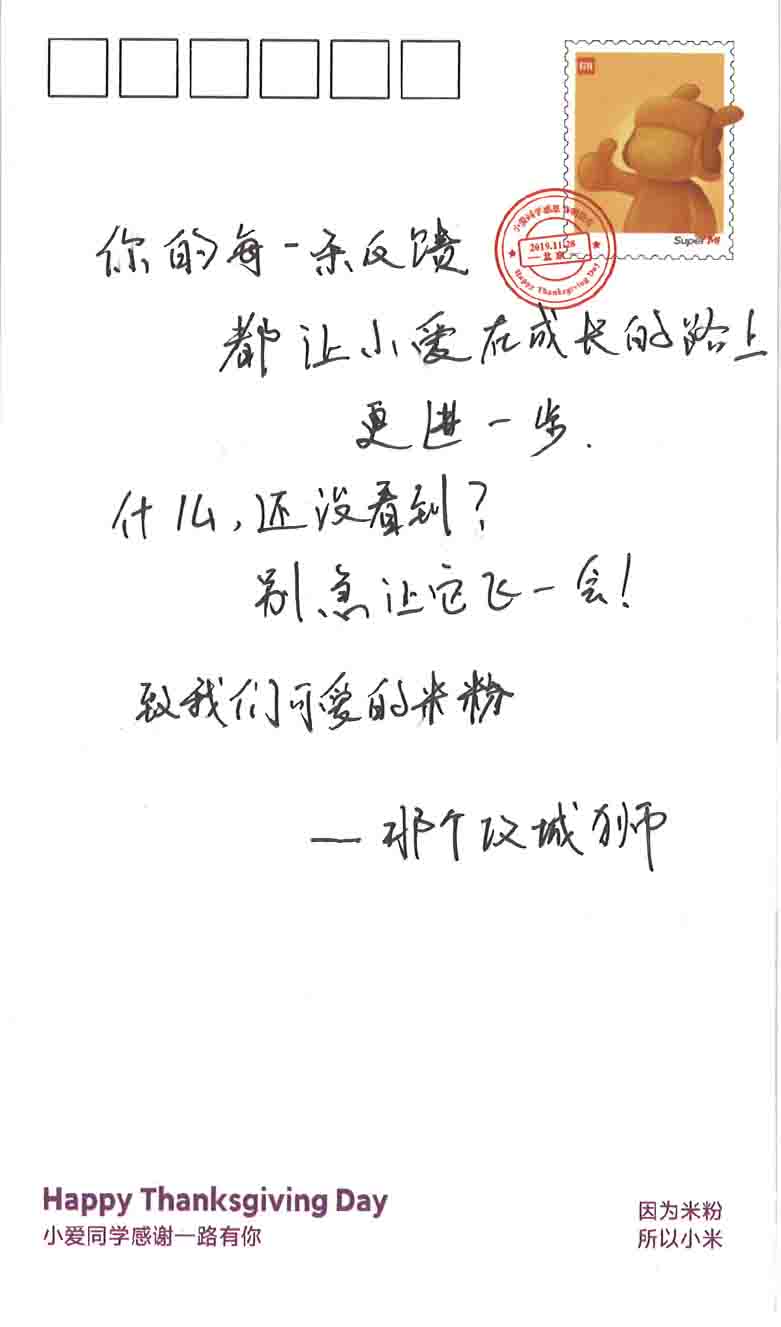 小爱同学感恩
2019.11.28
北京
Happy Thanksgiving Day
Super MI
你的每一条反馈
都让小爱在成长的路上
更进一步.
什么,还没看到?
别急让它飞一会!
致我们可爱的米粉
— 那个攻城狮
Happy Thanksgiving Day
小爱同学感谢一路有你
因为米粉
所以小米